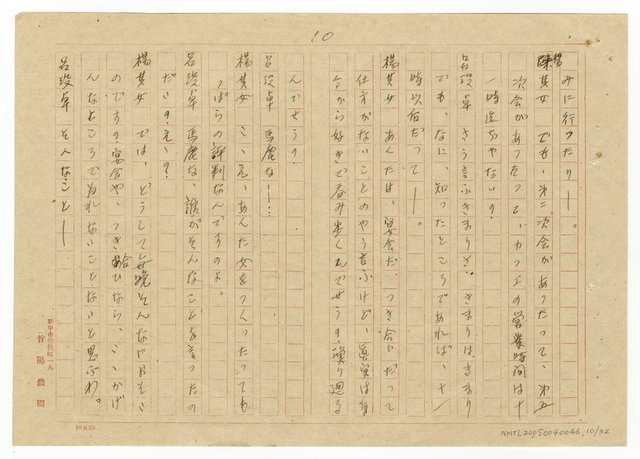 10
みに行ったり——。
楊其女 でも、第二次会があったって、第五
次会があったって、カフエの営業時間は十
一時迄ぢやないの。
呂段卓 さう言ふきまりさ。きまりはきまり
でも、なに、知ったところであれば、十一
時以后だって——。
楊其女 あんたは、宴会だ、つき合ひだって
仕方がないことのやう言ふけど、真実は自
分から好きで呑み歩くんでせう。 廻る
んでせう。
呂段卓 馬鹿な——。
楊其女 いゝえ、あんた女をつくったっても
つぱらの評判なんですのよ。
呂段卓 馬鹿な、誰がそんなことを言ったの
だい。え、。
楊其女 では、どうして毎晩そんなにおそい
のです。宴会や、つき合ひなら、いゝかげ
んなところで お れないことないと思ふわ。
呂段卓 そんなこと——
臺中市 町一九
首陽農園
10×20
NMTL20050040046, 10/32